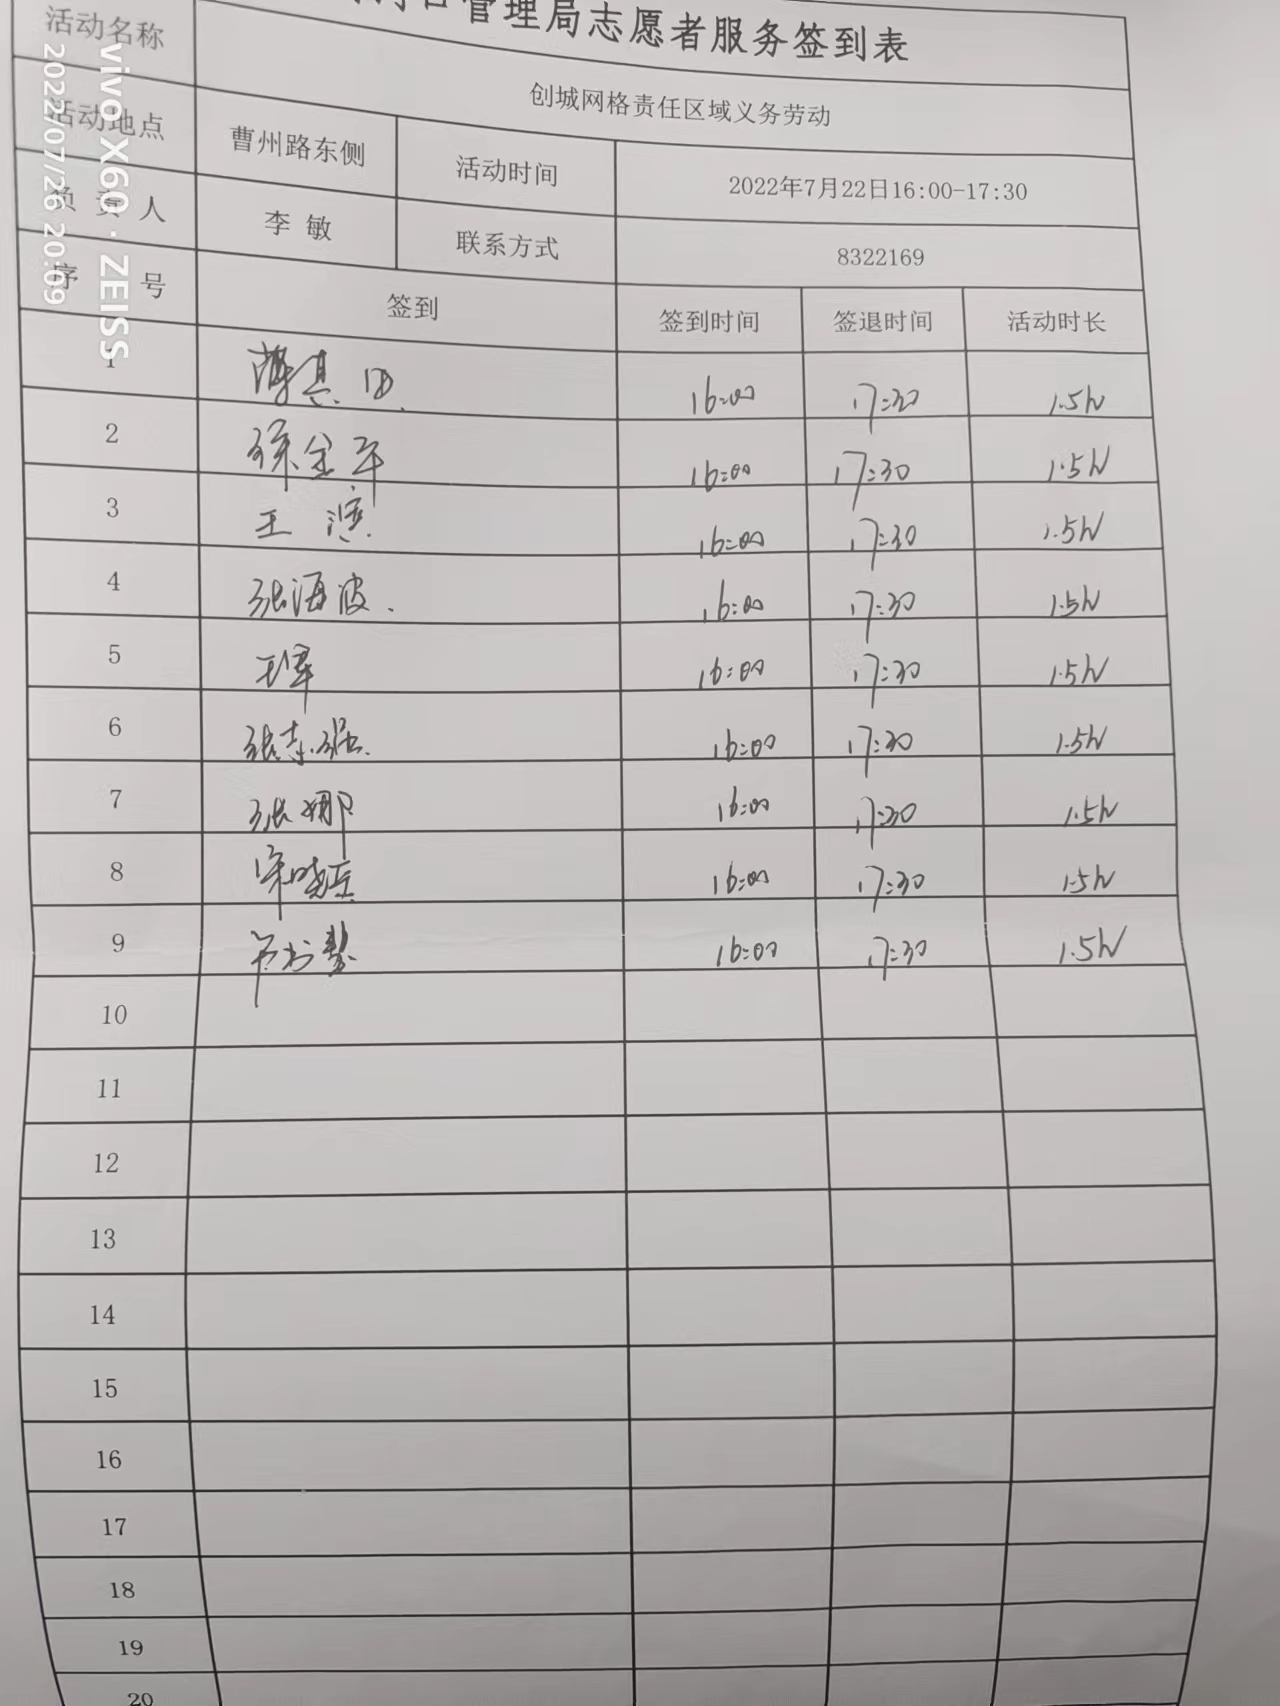 管理局志愿者服务签到表
活动名称 创城网格责任区域义务劳动
活动地点 曹州路东侧 活动时间 2022年7月22日16:00-17:30
负 责 人 李 敏 联系方式 8322169
序 号 签到 签到时间 签退时间 活动时长
1 16:00 17:30 1.5h
2 徐金平 16:00 17:30 1.5h
3 王 滨 16:00 17:30 1.5h
4 张海波 16:00 17:30 1.5h
5 王军 16:00 17:30 1.5h
6 张志强 16:00 17:30 1.5h
7 张娜 16:00 17:30 1.5h
8 16:00 17:30 1.5h
9 16:00 17:30 1.5h
10
11
12
13
14
15
16
17
18
19
20
vivo X60 · ZEISS
2022/07/26 20:09